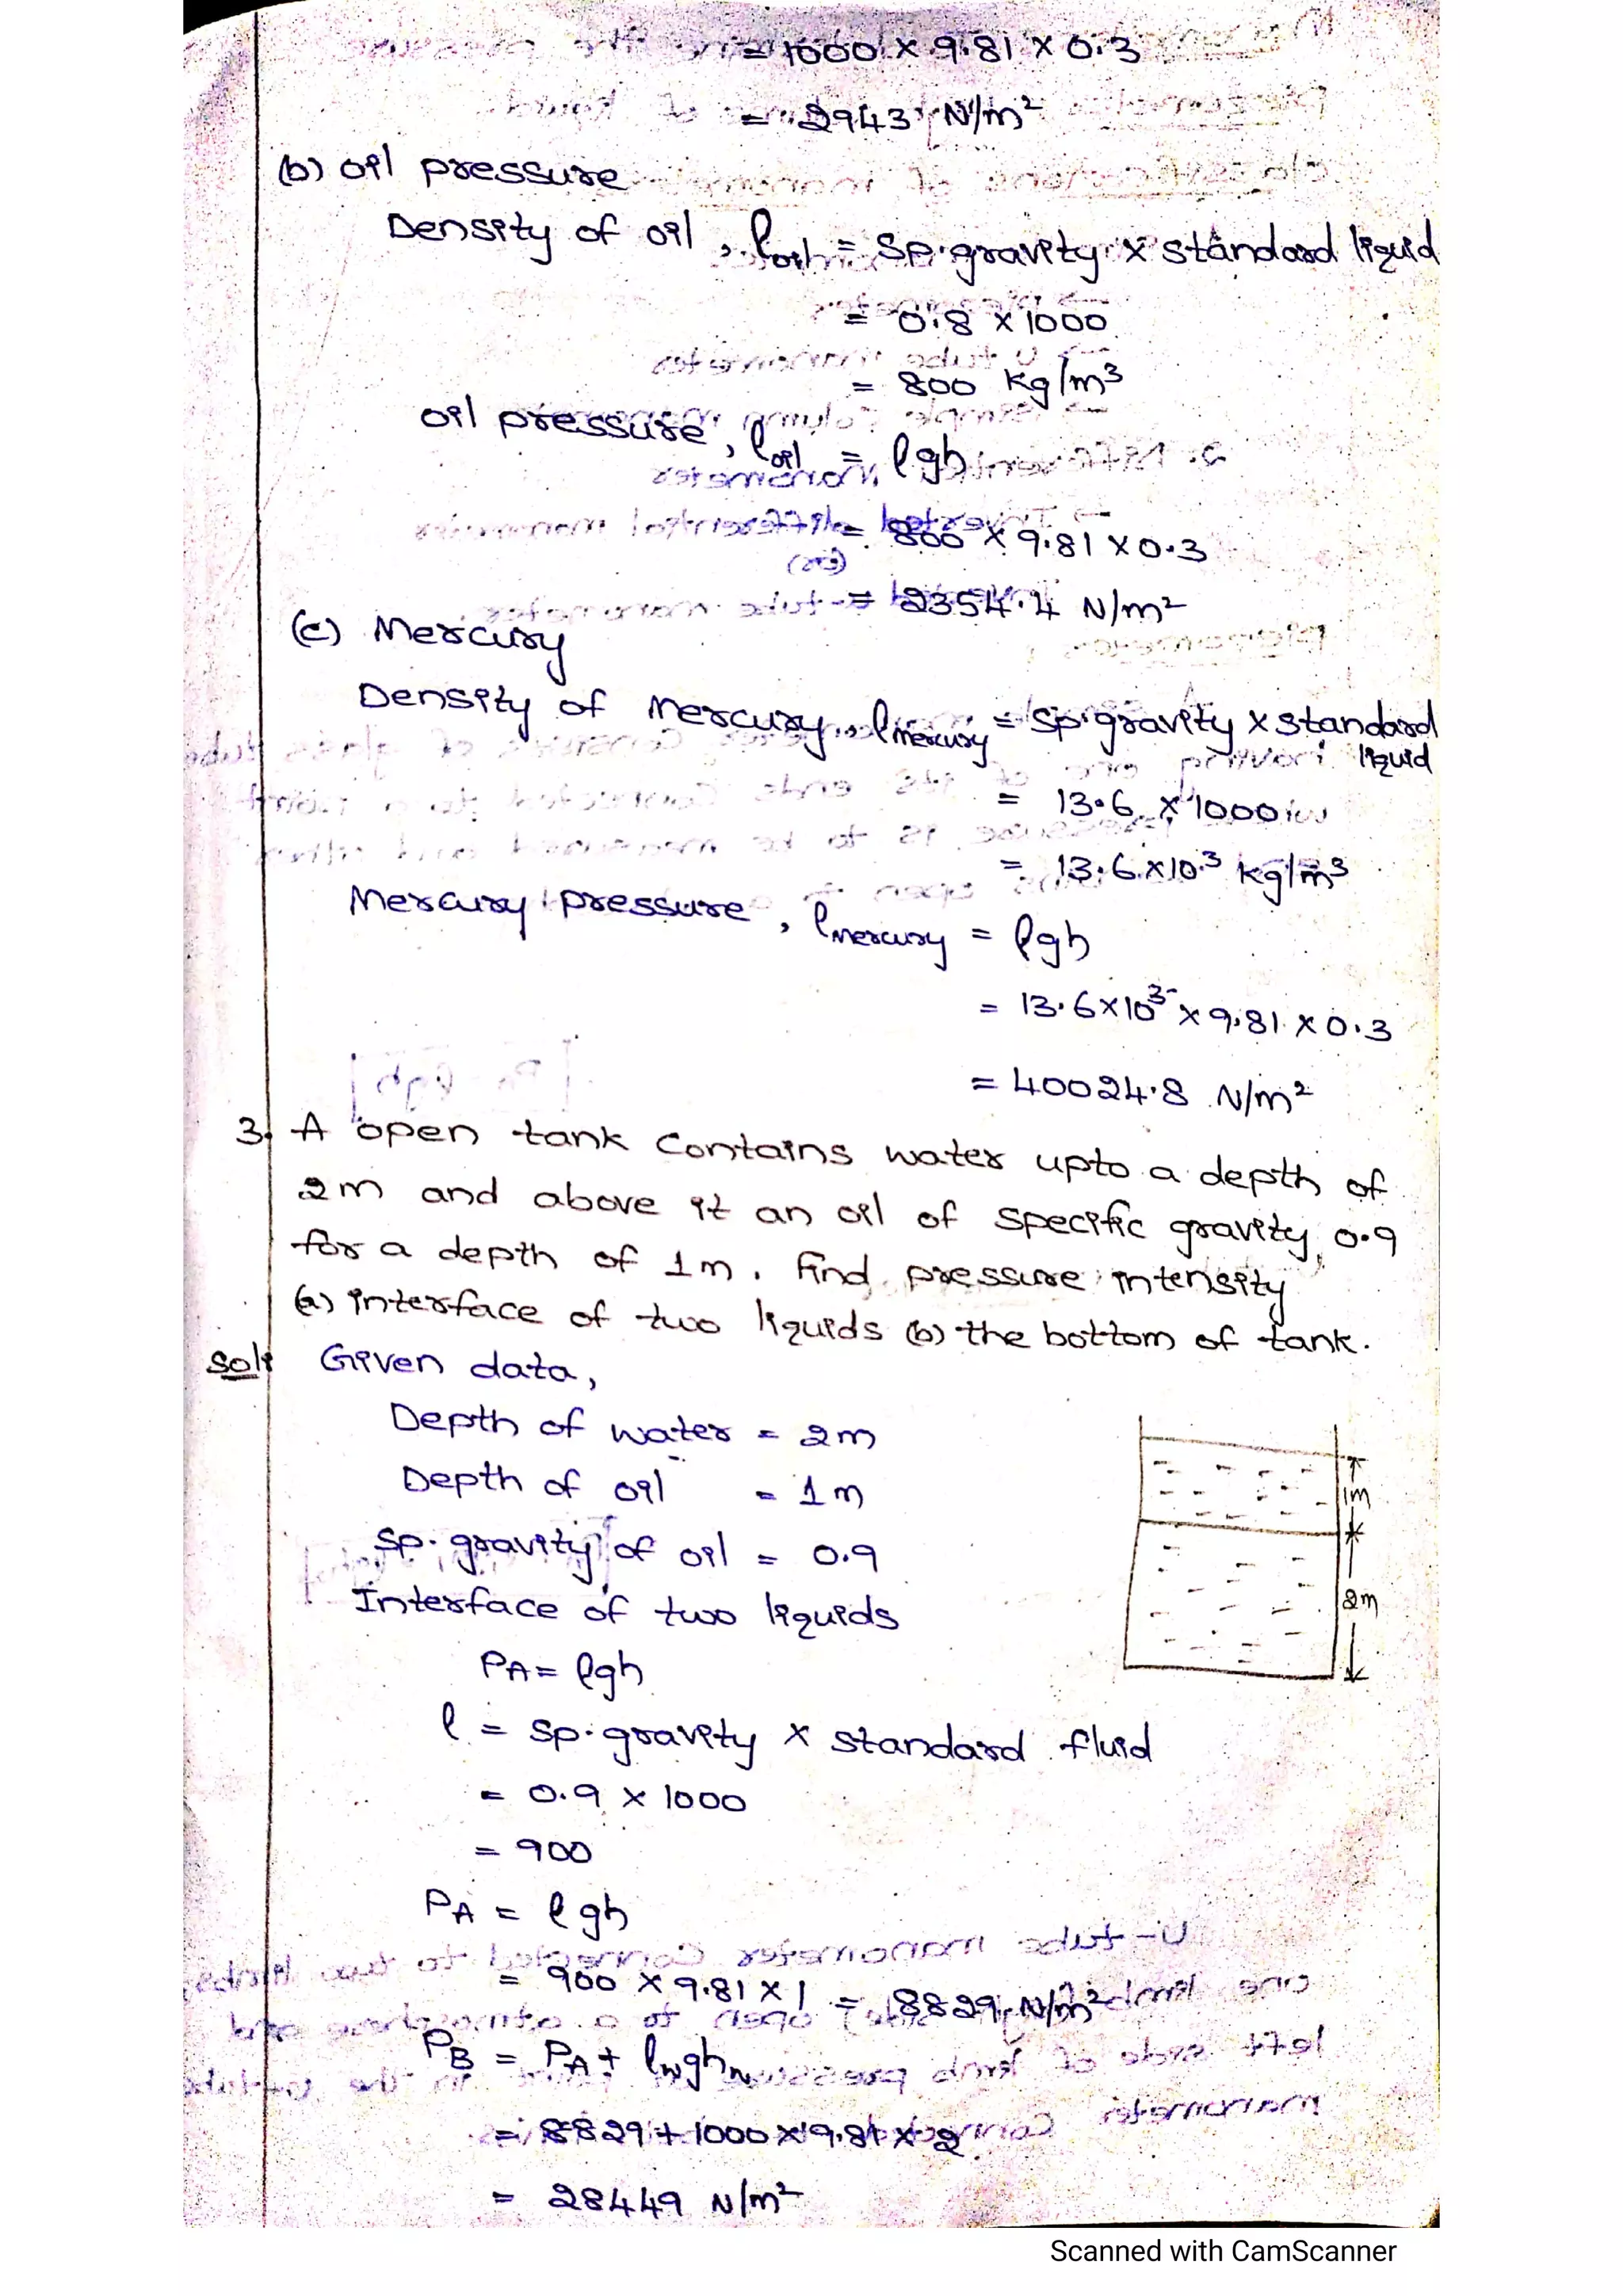 = 1000 x 9.81 x 0.3
= 2943 N/m²
(b) oil pressure
Density of oil, ρoil = Sp.gravity x standard liquid
= 0.8 x 1000
= 800 kg/m³
oil pressure, ρoil = ρgh
= 800 x 9.81 x 0.3
= 2354.4 N/m²
(c) Mercury
Density of Mercury, ρmercury = sp.gravity x standard liquid
= 13.6 x 1000
= 13.6 x 10³ kg/m³
Mercury pressure, ρmercury = ρgh
= 13.6 x 10³ x 9.81 x 0.3
= 40024.8 N/m²
3. A open tank contains water upto a depth of
2m and above it an oil of specific gravity 0.9
for a depth of 1m. find pressure intensity
(a) interface of two liquids (b) the bottom of tank.
Sol: Given data,
Depth of water = 2m
Depth of oil = 1m
Sp. gravity of oil = 0.9
Interface of two liquids
PA = ρgh
ρ = sp.gravity x standard fluid
= 0.9 x 1000
= 900
PA = ρgh
= 900 x 9.81 x 1 = 8829 N/m²
PB = PA + ρwghw
= 8829 + 1000 x 9.81 x 2
= 28449 N/m²
1m
2m
Scanned with CamScanner